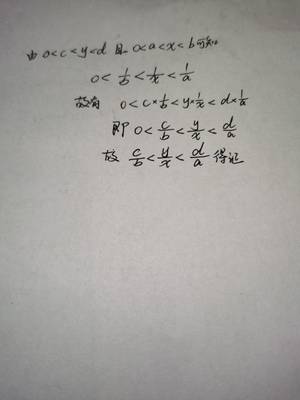 由 0<c<y<d 且 0<a<x<b 可知
0 < 1/b < 1/x < 1/a
故有 0<c×1/b<y×1/x<d×1/a
即 0< c/b < y/x < d/a
故 c/b < y/x < d/a 得证